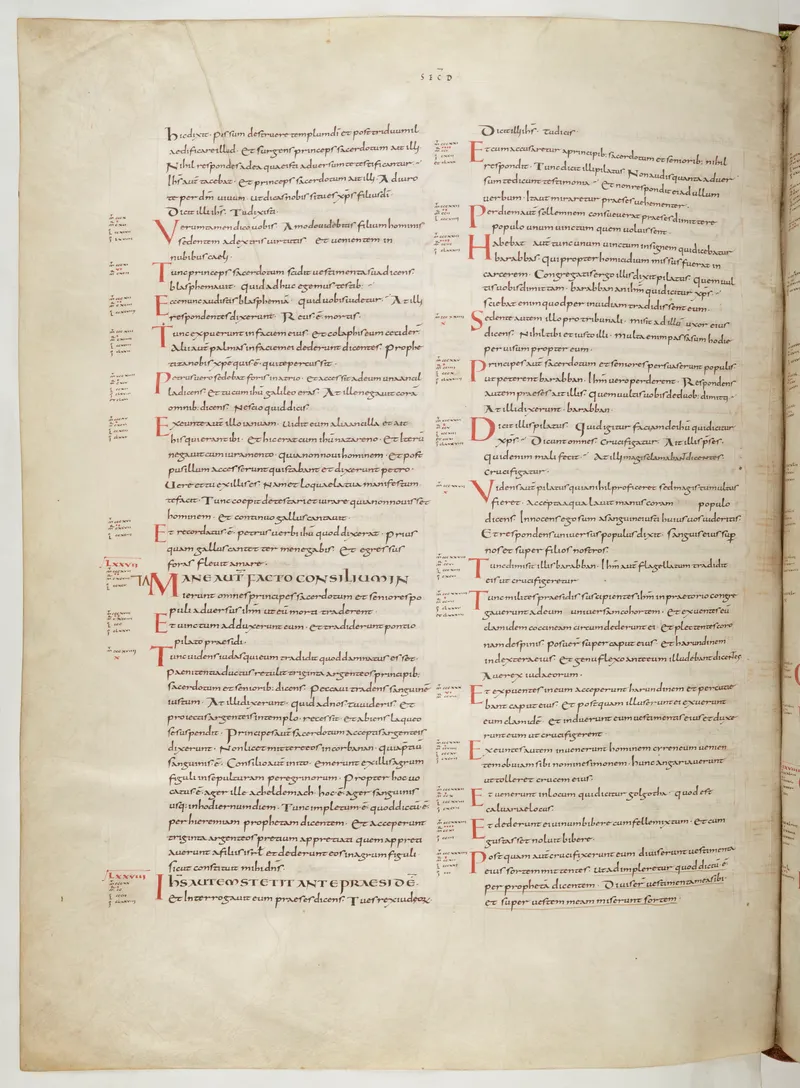 SECD
hic dixit · possum destruere templum dī et post triduum il
aedificare illud · Et surgens princeps sacerdotum ait illi
Nihil respondes ad ea quae isti aduersum te testificantur ·
Ihs aut tacebat · Et princeps sacerdotum ait illi · Adiuro
te per dm uiuum · ut dicas nobis si tu es xps filius di ·
Dicit illi ihs · Tu dixisti ·
Verumtamen dico uobis · Amodo uidebitis filium hominis
sedentem a dextris uirtutis · et uenientem in
nubibus caeli ·
Tunc princeps sacerdotum scidit uestimenta sua dicens
blasphemauit · quid adhuc egemus testib ·
Ecce nunc audistis blasphemiā · quid uobis uidetur · At illi
respondentes dixerunt · Reus ē mortis ·
Tunc expuerunt in faciem eius · et colaphis eum cecider
Alii aut palmas in faciem ei dederunt dicentes · Prophe
tiza nobis xpe quis ē · qui te percussit ·
Petrus uero sedebat foris in atrio · Et accessit ad eum una ancil
la dicens · et tu cum ihu galileo eras · At ille negauit cora
omnib · dicens · Nescio quid dicis
Exeunte aut illo ianuam · Uidit eum alia ancilla et ait
his qui erant ibi · et hic erat cum ihu nazareno · Et iterū
negauit cum iuramento · quia non noui hominem · Et post
pusillum accesserunt qui stabant et dixerunt petro ·
Uere et tu ex illis es · Nam et loquela tua manifestum
te facit · Tunc coepit detestari et iurare quia non nouisset
hominem · et continuo gallus cantauit ·
Et recordatus ē · petrus uerbi ihu quod dixerat · Prius
quam gallus cantet ter me negabis · Et egressus
foras fleuit amare ·
LXXVII
MANE AUT FACTO CONSILIUM IN
ierunt omnes principes sacerdotum et seniores po
puli aduersus ihm ut eū morti traderent
Et uinctum adduxerunt eum · et tradiderunt pontio
pilato praesidi ·
Tunc uidens iudas qui eum tradidit quod damnatus esset ·
paenitentia ductus retulit triginta argenteos principib ·
sacerdotum et seniorib · dicens · Peccaui tradens sanguinē
iustum · At illi dixerunt · quid ad nos tu uideris · Et
proiectis argenteis in templo · recessit · et abiens laqueo
se suspendit · Principes aut sacerdotum acceptis argenteis
dixerunt · Non licet mittere eos in corbanan · quia p̄tiū
sanguinis ē · Consilio aut inito · emerunt ex illis agrum
figuli in sepulturam peregrinorum · Propter hoc uo
catus ē · ager ille acheldemach · hoc ē · ager sanguinis
usq in hodiernum diem · Tunc impletum ē · quod dictū ē
per hieremiam prophetam dicentem · Et acceperunt
triginta argenteos pretium appretiati quem appreti
auerunt a filiis isrl et dederunt eos in agrum figuli
sicut constituit mihi dns ·
LXXVIII
IHS AUTEM STETIT ANTE PRAESIDĒ ·
et interrogauit eum praeses dicens · Tu es rex iudeor
Dicit illi ihs · Tu dicis ·
Et cum accusaretur a principib · sacerdotum et seniorib · nihil
respondit · Tunc dicit illi pilatus · Non audis quanta aduer
sum te dicunt testimonia · Et non respondit ei ad ullum
uerbum · Ita ut miraretur praeses uehementer ·
Per diem aut sollemnem consueuerat praeses dimittere
populo unum uinctum quem uoluissent ·
Habebat aut tunc unum uinctum insignem qui dicebatur
barabbas · qui propter homicidium missus fuerat in
carcerem · Congregatis ergo illis dixit pilatus · Quem uul
tis uobis dimittam · barabban an ihm qui dicitur xps ·
sciebat enim quod per inuidiam tradidissent eum ·
Sedente autem illo pro tribunali · misit ad illū uxor eius
dicens · Nihil tibi et iusto illi · multa enim passa sum hodie
per uisum propter eum ·
Principes aut sacerdotum et seniores persuaserunt populis
ut peterent barabban · Ihm uero perderent · Respondens
autem praeses ait illis · Quem uultis uobis de duob · dimitti ·
At illi dixerunt · barabban ·
Dicit illis pilatus · Quid igitur faciam de ihu qui dicitur
xps · Dicunt omnes · Crucifigatur · Ait illis pses ·
quid enim mali fecit · At illi magis clamabant dicentes
crucifigatur ·
Videns aut pilatus quia nihil proficeret sed magis tumultus
fieret · Accepta aqua lauit manus coram populo
dicens · Innocens ego sum a sanguine iusti huius uos uideritis
Et respondens uniuersus populus dixit · Sanguis eius sup
nos et super filios nostros ·
Tunc dimisit illis barabban · Ihm aut flagellatum tradidit
eis ut crucifigeretur
Tunc milites praesidis suscipientes ihm in praetorio congre
gauerunt ad eum · uniuersam cohortem · et exuentes eū
clamidem coccineam circumdederunt ei · et plectentes coro
nam de spinis posuer super caput eius · et harundinem
in dextera eius · Et genu flexo ante eum illudebant dicentes
Aue rex iudaeorum ·
Et expuentes in eum acceperunt harundinem et percutie
bant caput eius · Et postquam illuserunt ei exuerunt
eum clamidē · et induerunt eum uestimentis eius et duxe
runt eum ut crucifigerent ·
Exeuntes autem inuenerunt hominem cirreneum uenien
tem obuiam sibi nomine simonem · hunc angariauerunt
ut tolleret crucem eius
Et uenerunt in locum qui dicitur golgotha · quod est
caluariae locus ·
Et dederunt ei uinum bibere cum felle mixtum · Et cum
gustasset noluit bibere ·
Postquam aut crucifixerunt eum diuiserunt uestimenta
eius sortem mittentes · Ut adimpleretur quod dictū ē
per prophetā dicentem · Diuiser uestimenta mea sibi ·
et super uestem meam miserunt sortem ·